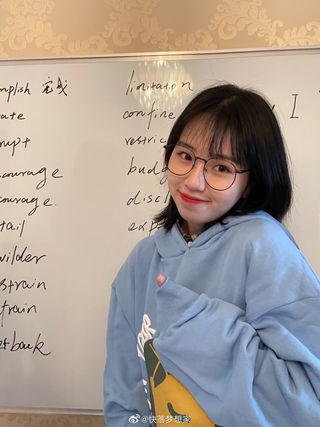 mplish 完成
ate
mpt
courage
courage
tail
wilder
strain
train
back
limitation
confine
restric
budg
discl
exp
I
@快落梦想家